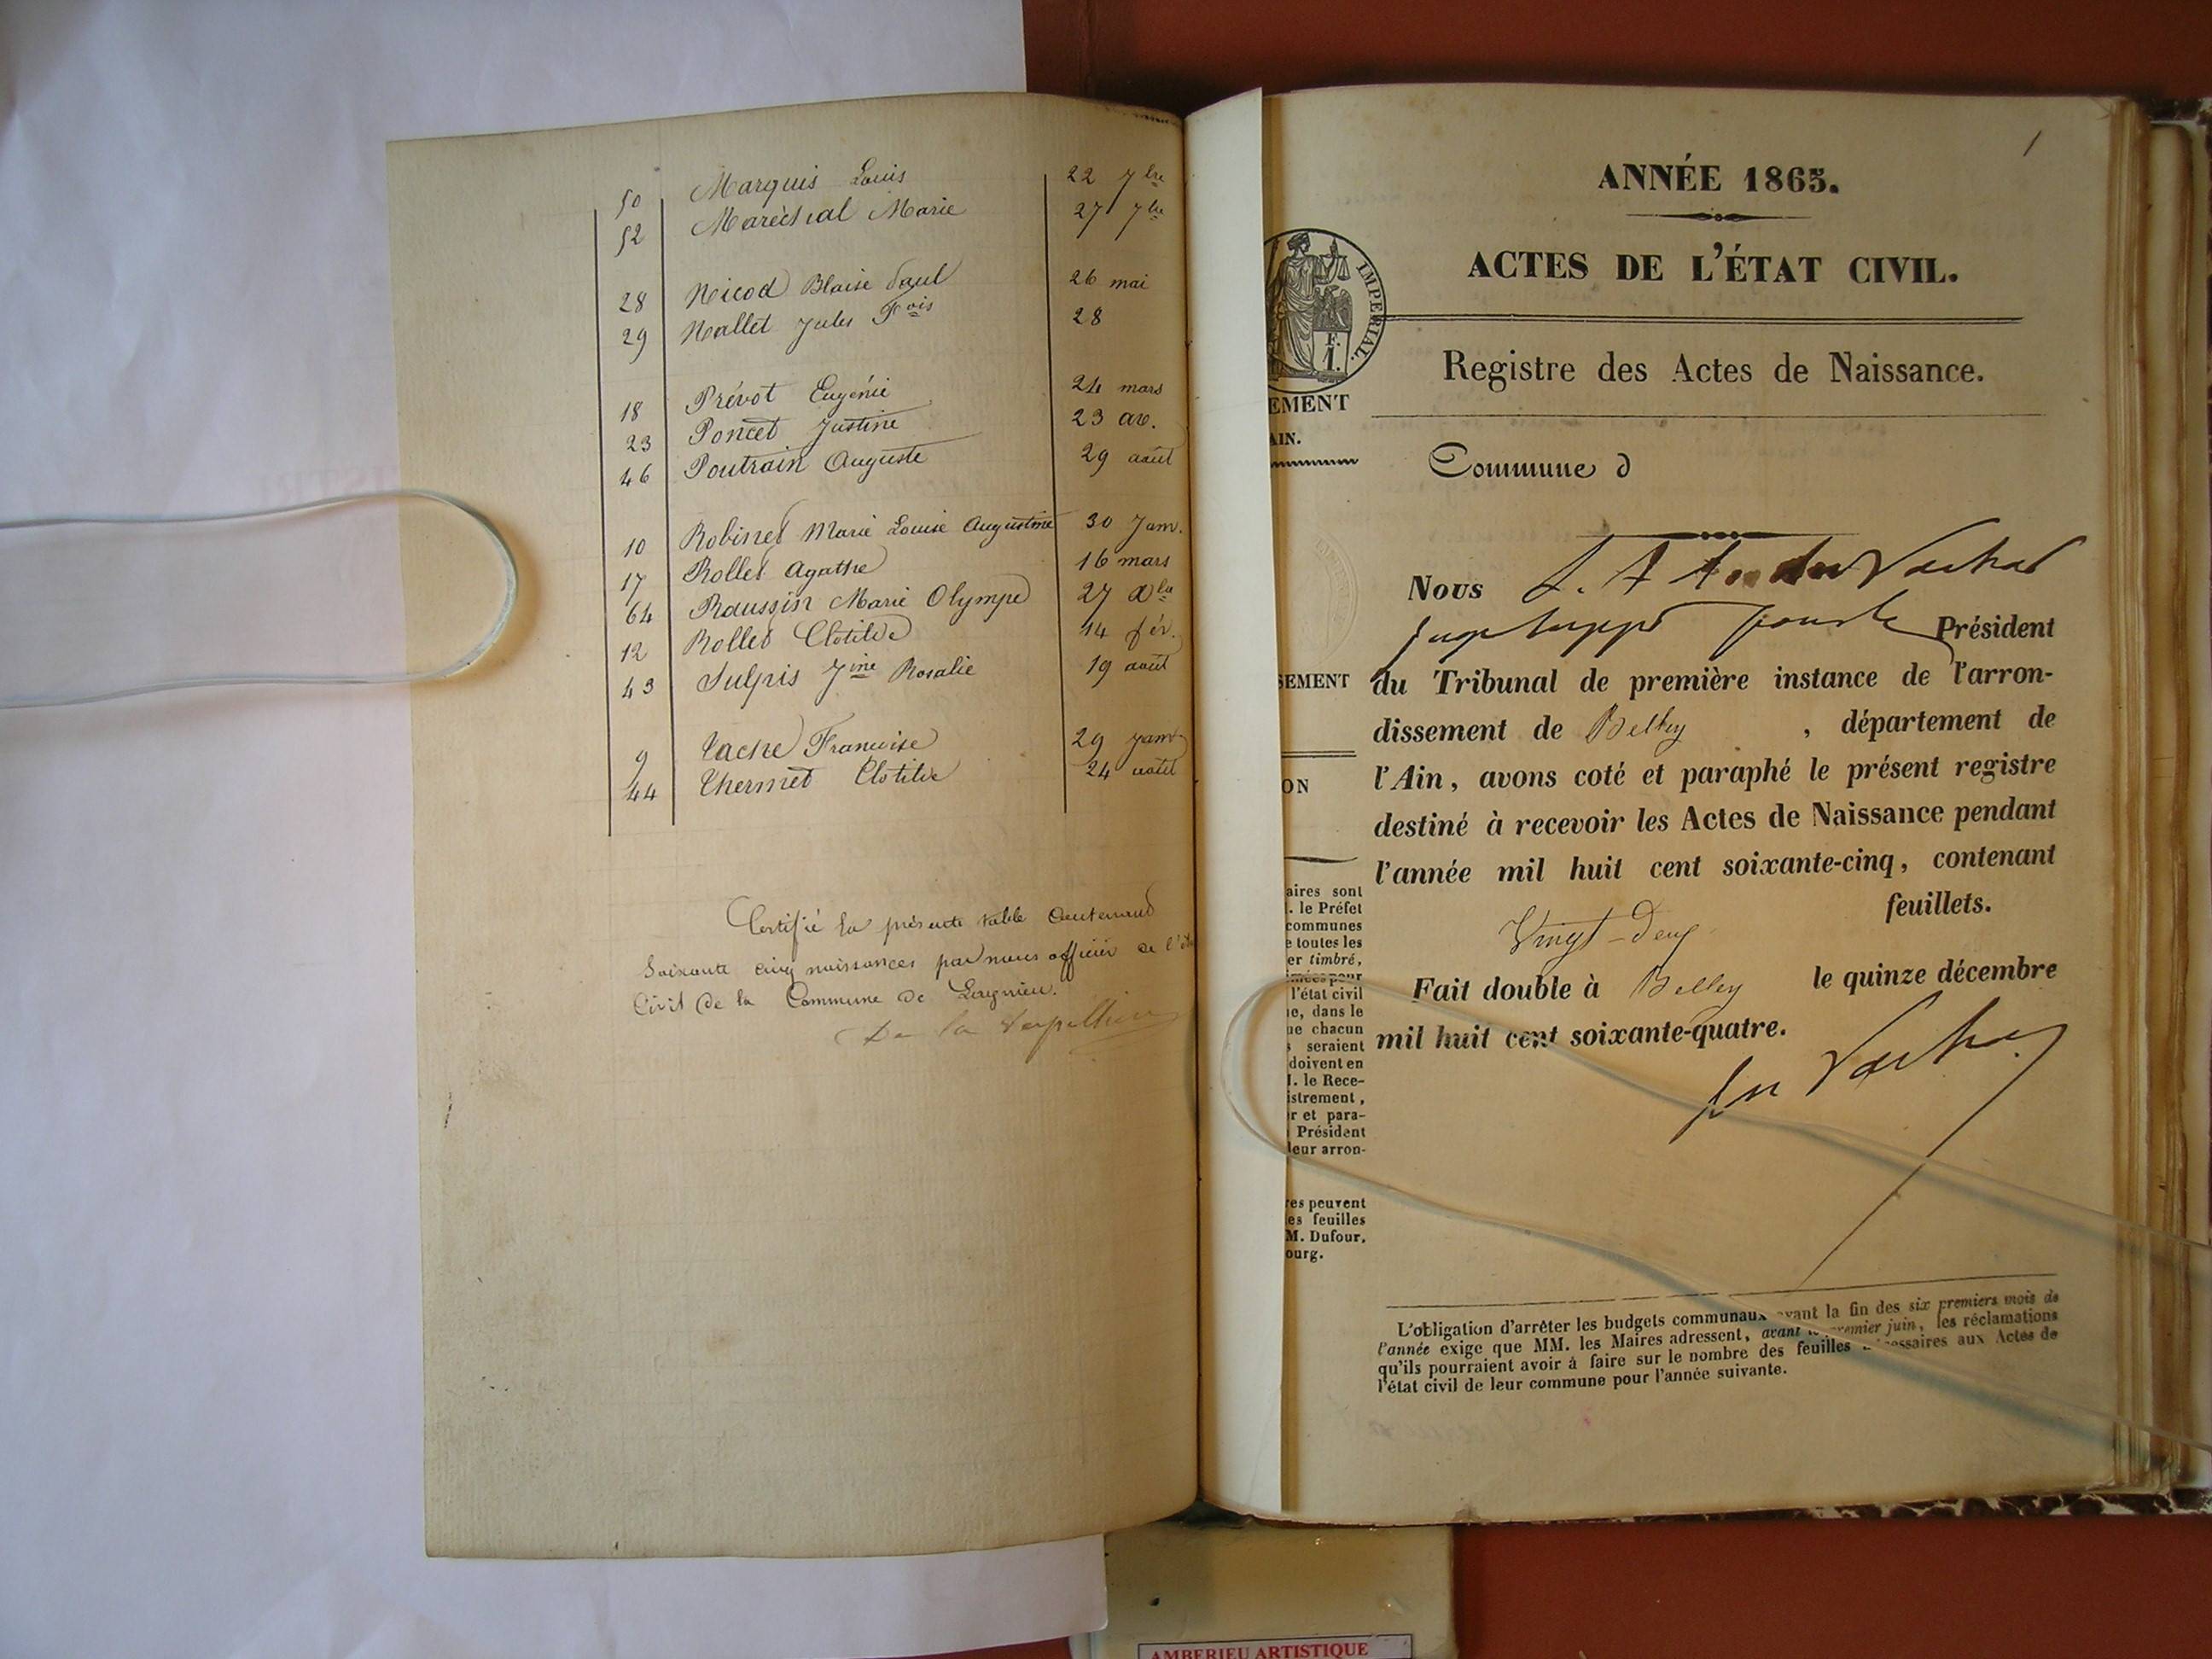 50 Marquis Louis 22 7bre
52 Maréchal Marie 27 7bre
28 Nicod Blaise Paul 26 mai
29 Nallet Jules Fois 28
18 Prévot Eugénie 24 mars
23 Poncet Justine 23 av.
46 Poutrain Auguste 29 août
10 Robinet Marie Louise Augustine 30 Janv.
17 Rollet Agathe 16 mars
64 Roussin Marie Olympe 27 Xbre
12 Rollet Clotilde 14 fév.
43 Sulpis Jine Rosalie 19 août
9 Vache Françoise 29 janv
44 Thermet Clotilde 24 août
Certifié la présente table contenant
soixante cinq naissances par nous officier de l'ét
Civil de la Commune de Lagnieu.
De la Verpillière
1
ANNÉE 1865.
ACTES DE L'ÉTAT CIVIL.
IMPERIAL.
F.
1.
Registre des Actes de Naissance.
EMENT
AIN.
Commune d
Nous
juge suppt pour le Président
SEMENT
du Tribunal de première instance de l'arron-
dissement de Belley , département de
ON
l'Ain, avons coté et paraphé le présent registre
destiné à recevoir les Actes de Naissance pendant
l'année mil huit cent soixante-cinq, contenant
Vingt-Deux feuillets.
Fait double à Belley le quinze décembre
mil huit cent soixante-quatre.
aires sont
. le Préfet
communes
e toutes les
er timbré,
imées pour
l'état civil
ne, dans le
ue chacun
s seraient
doivent en
I. le Rece-
istrement,
r et para-
Président
leur arron-
res peuvent
es feuilles
M. Dufour,
ourg.
L'obligation d'arrêter les budgets communaux avant la fin des six premiers mois de
l'année exige que MM. les Maires adressent, avant le premier juin, les réclamations
qu'ils pourraient avoir à faire sur le nombre des feuilles nécessaires aux Actes de
l'état civil de leur commune pour l'année suivante.
AMBERIEU ARTISTIQUE